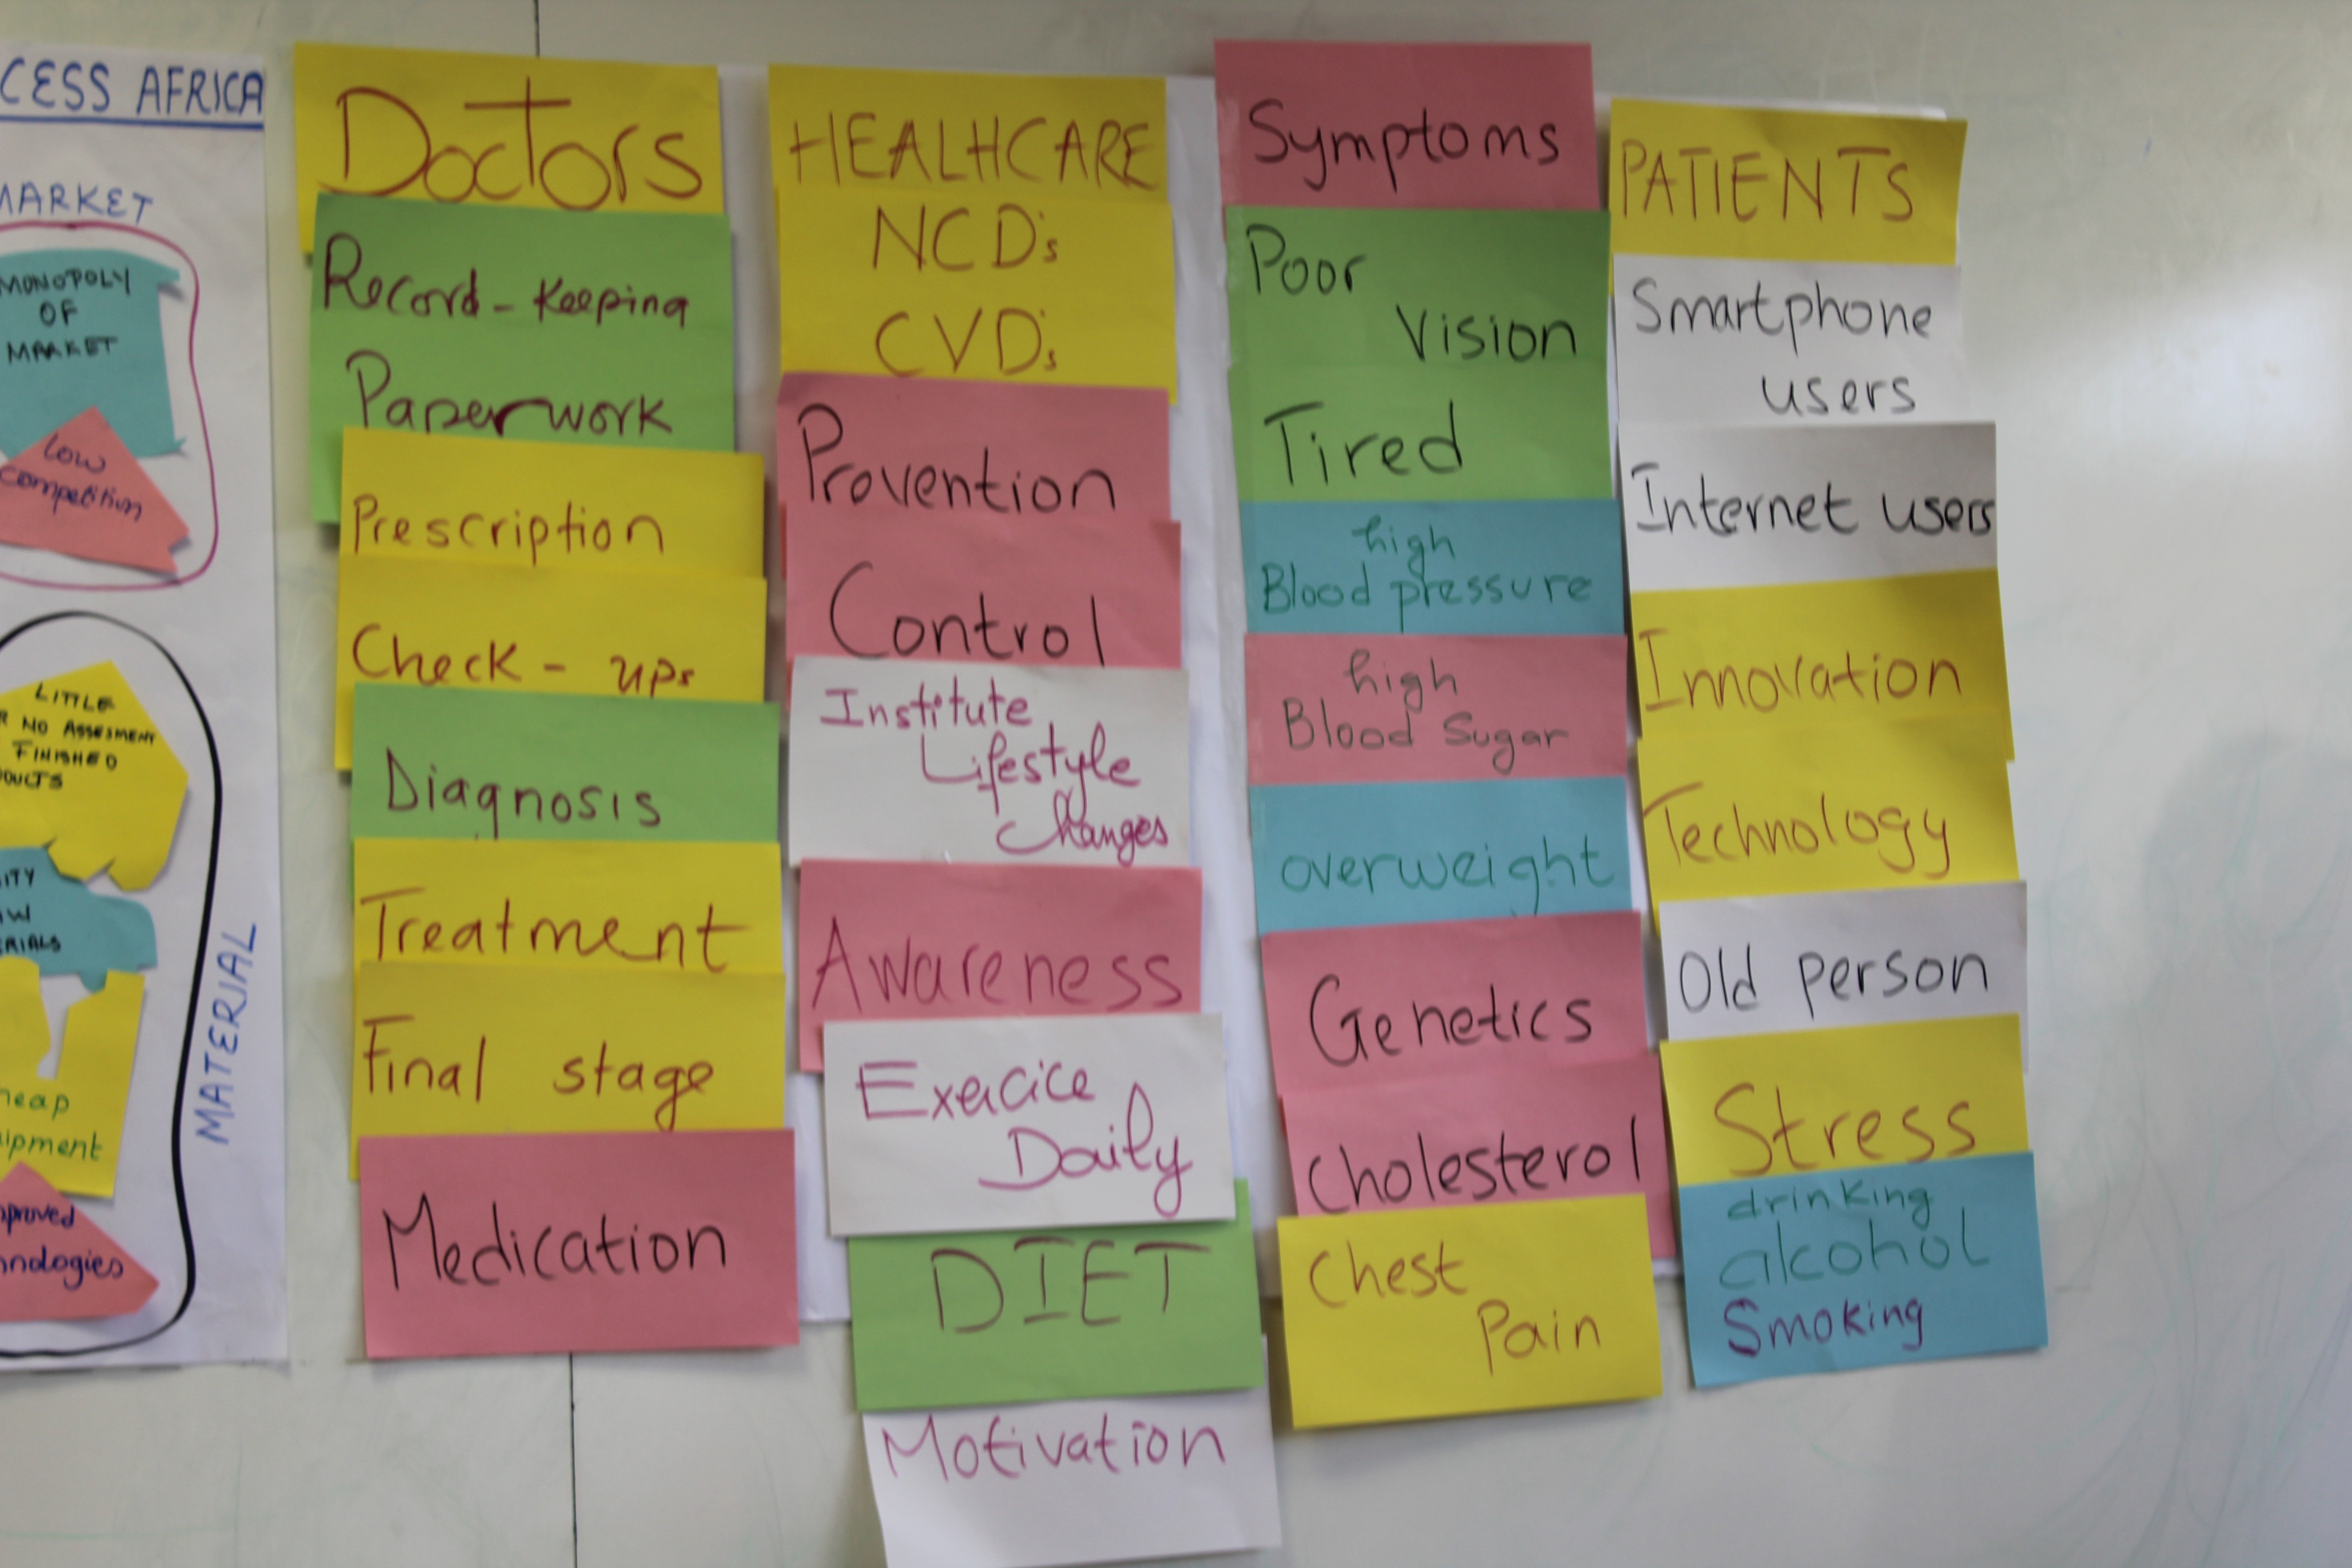 CESS AFRICA
MARKET
MONOPOLY
OF
MARKET
Low
competition
LITTLE
R NO ASSESMENT
FINISHED
DUCTS
ITY
AW
ERIALS
heap
ipment
proved
nologies
MATERIAL
Doctors
Record-Keeping
Paperwork
Prescription
Check-ups
Diagnosis
Treatment
Final stage
Medication
HEALHCARE
NCD's
CVD's
Provention
Control
Institute
Lifestyle
Changes
Awareness
Exercice
Daily
DIET
Motivation
Symptoms
Poor
Vision
Tired
high
Blood pressure
high
Blood Sugar
overweight
Genetics
Cholesterol
Chest
Pain
PATIENTS
Smartphone
users
Internet users
Innovation
Technology
Old person
Stress
drinking
alcohol
Smoking